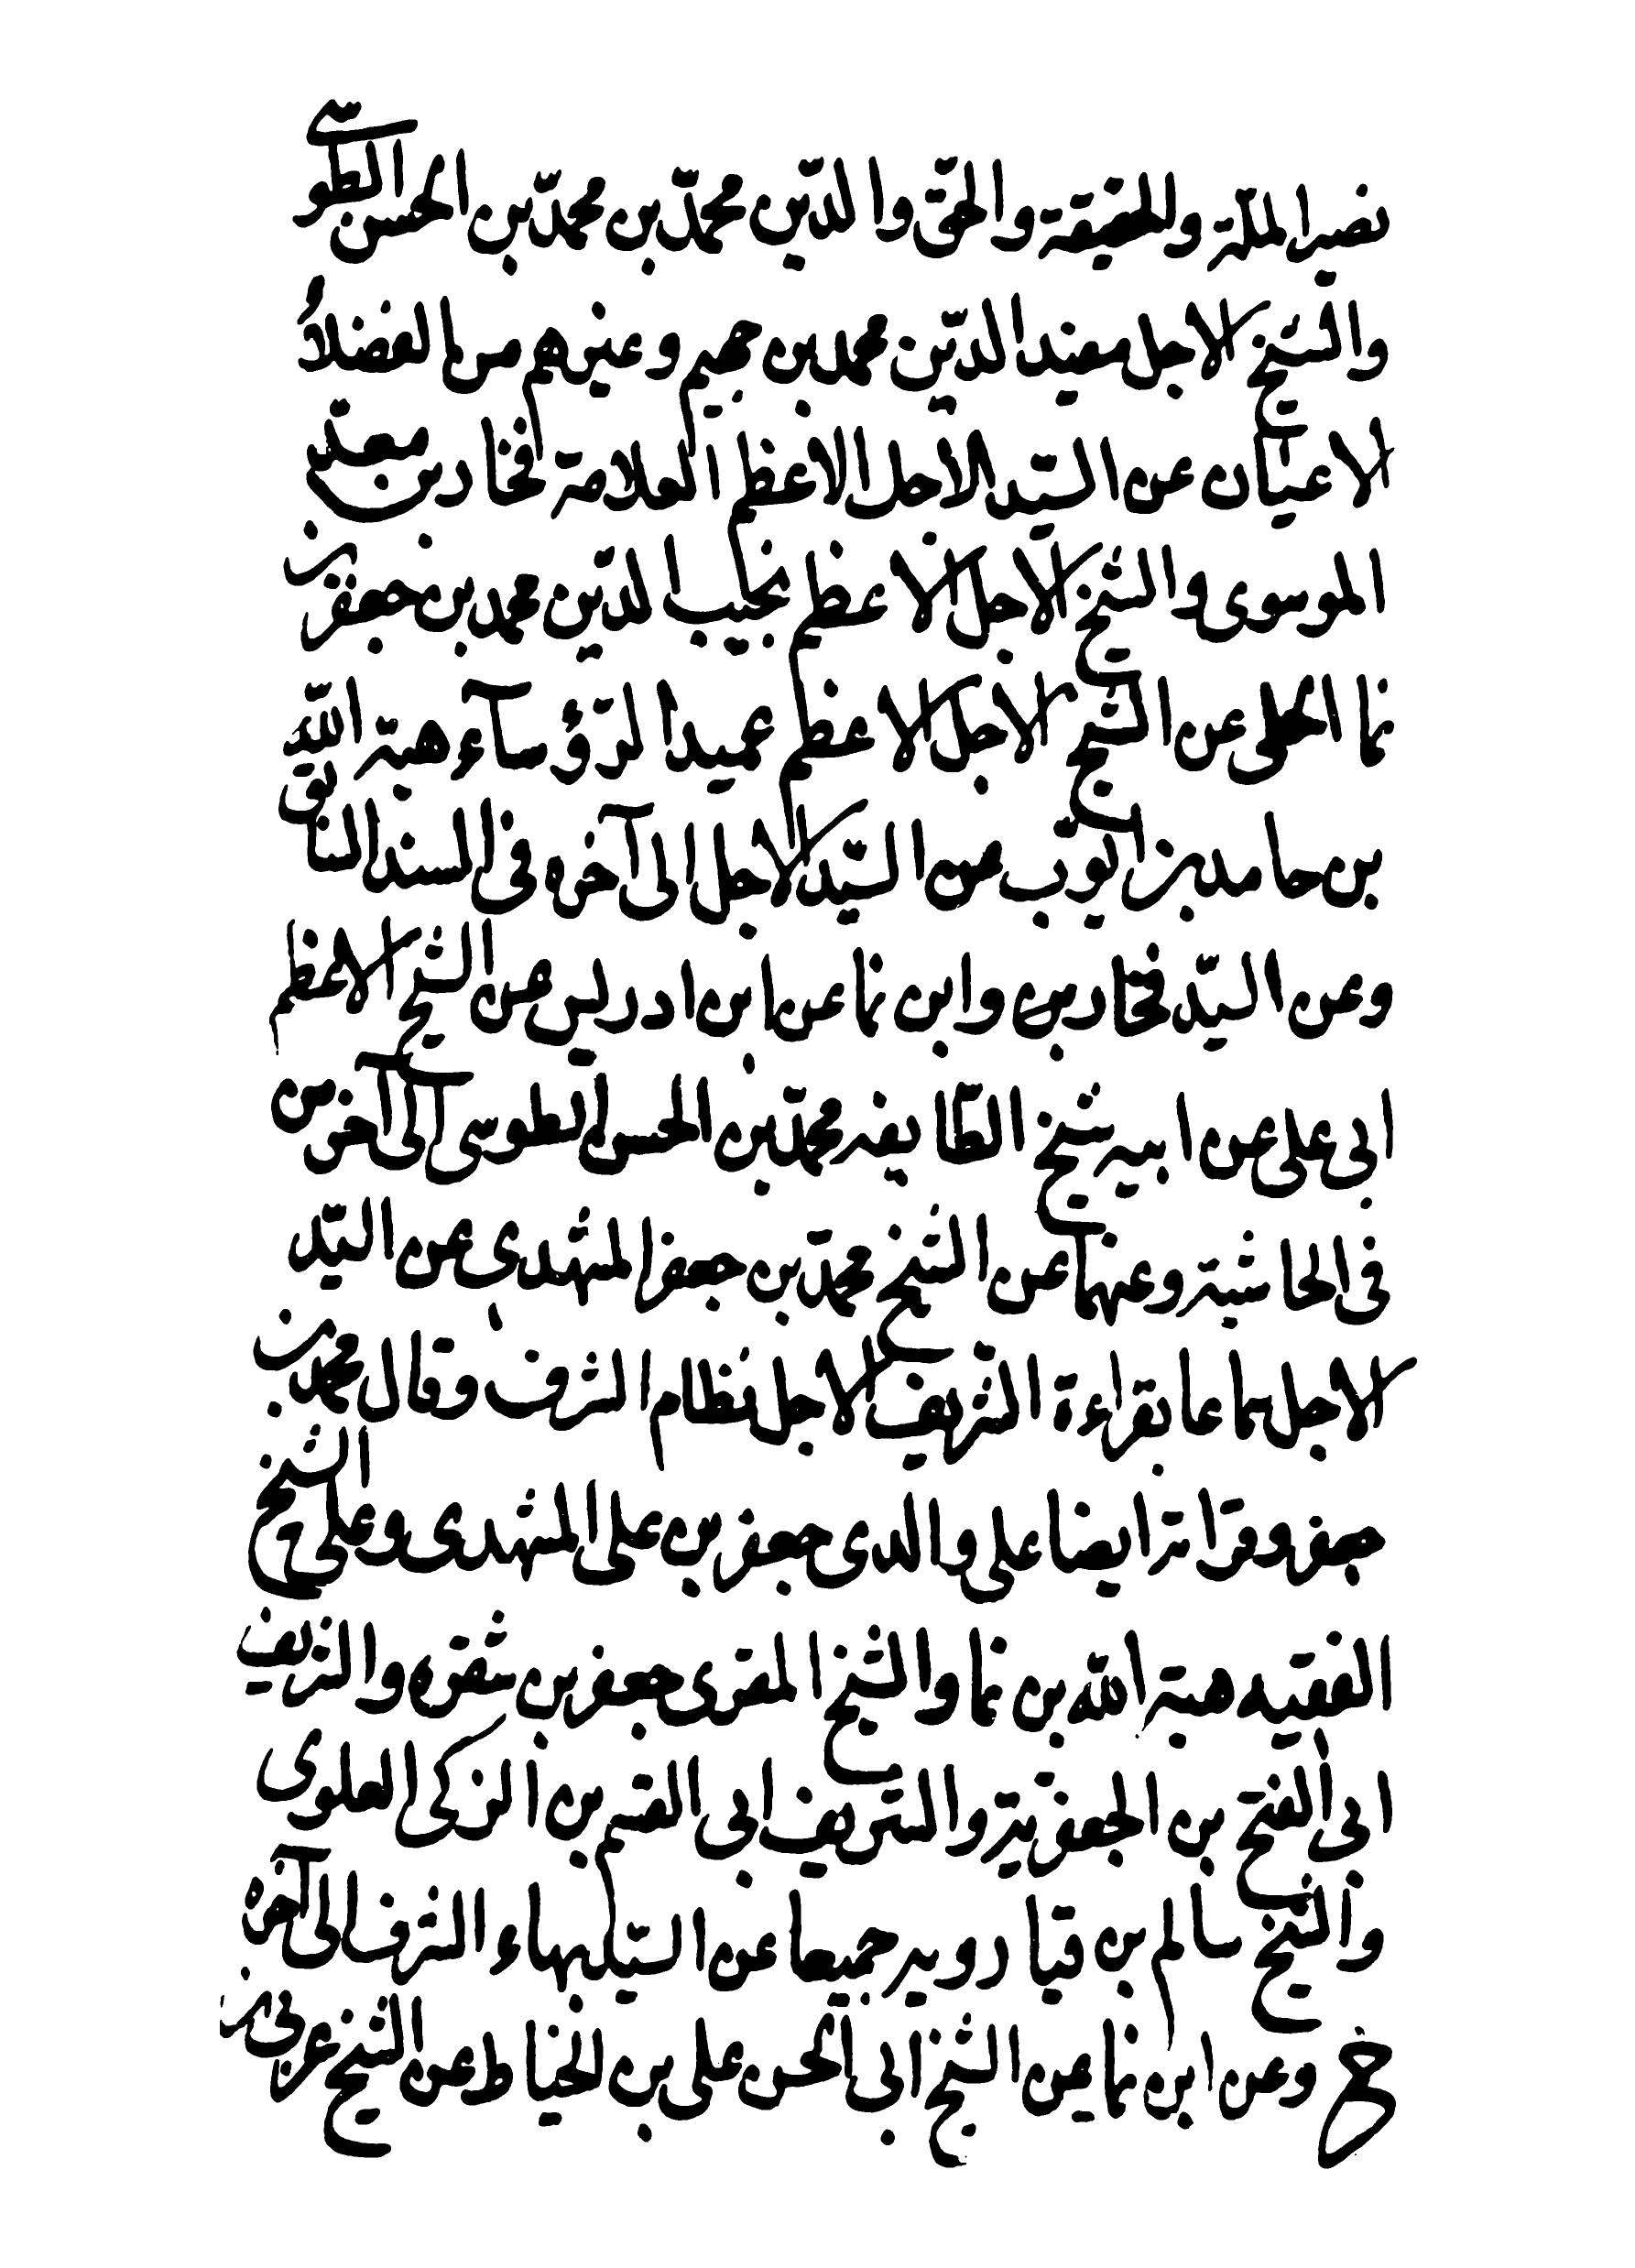 نصير الملة والحقيقة والحق والدّين محمّد بن محمّد بن الحسن الطّوسي
والشيخ الاجل مفيد الدّين محمد بن جهيم وغيرهم من الفضلاء
الاعيان عن السيّد الاجل الاعظم العلامة فخار بن معد
الموسوى والشيخ الاجل الاعظم نجيب الدّين محمد بن جعفر بن
نما الحلى عن الشيخ الاجل الاعظم عميد الرّؤسآء هبة اللّه
بن حامد بن ايوب عن السيّد الاجل الى آخره في السند السابق
وعن السيّد فخار بن وابن نما عن ابن ادريس عن الشيخ الاعظم
ابى على عن ابيه شيخ الطّايفه محمّد بن الحسن الطوسى الى آخر من
في الحاشية وعنهما عن الشيخ محمّد بن جعفر المشهدى عن السيّد
الاجل سماعا بقراءة الشريف الاجل نظام الشرف وقال محمد بن
جعفر وقراته ايضا على والدى جعفر بن على المشهدى وعلى الشيخ
الفقيه هبة اللّه بن نما والشيخ المقرى جعفر بن شقره والشريف
ابى الفتح بن الجعفرية والشريف ابى القسم بن الزكى العلوى
والشيخ سالم بن قبارويه جميعا عن السيّد بهاء الشرف الى آخره
ح وعن ابن نما عن الشيخ ابى الحسن على بن الخياط عن الشيخ عربى بن